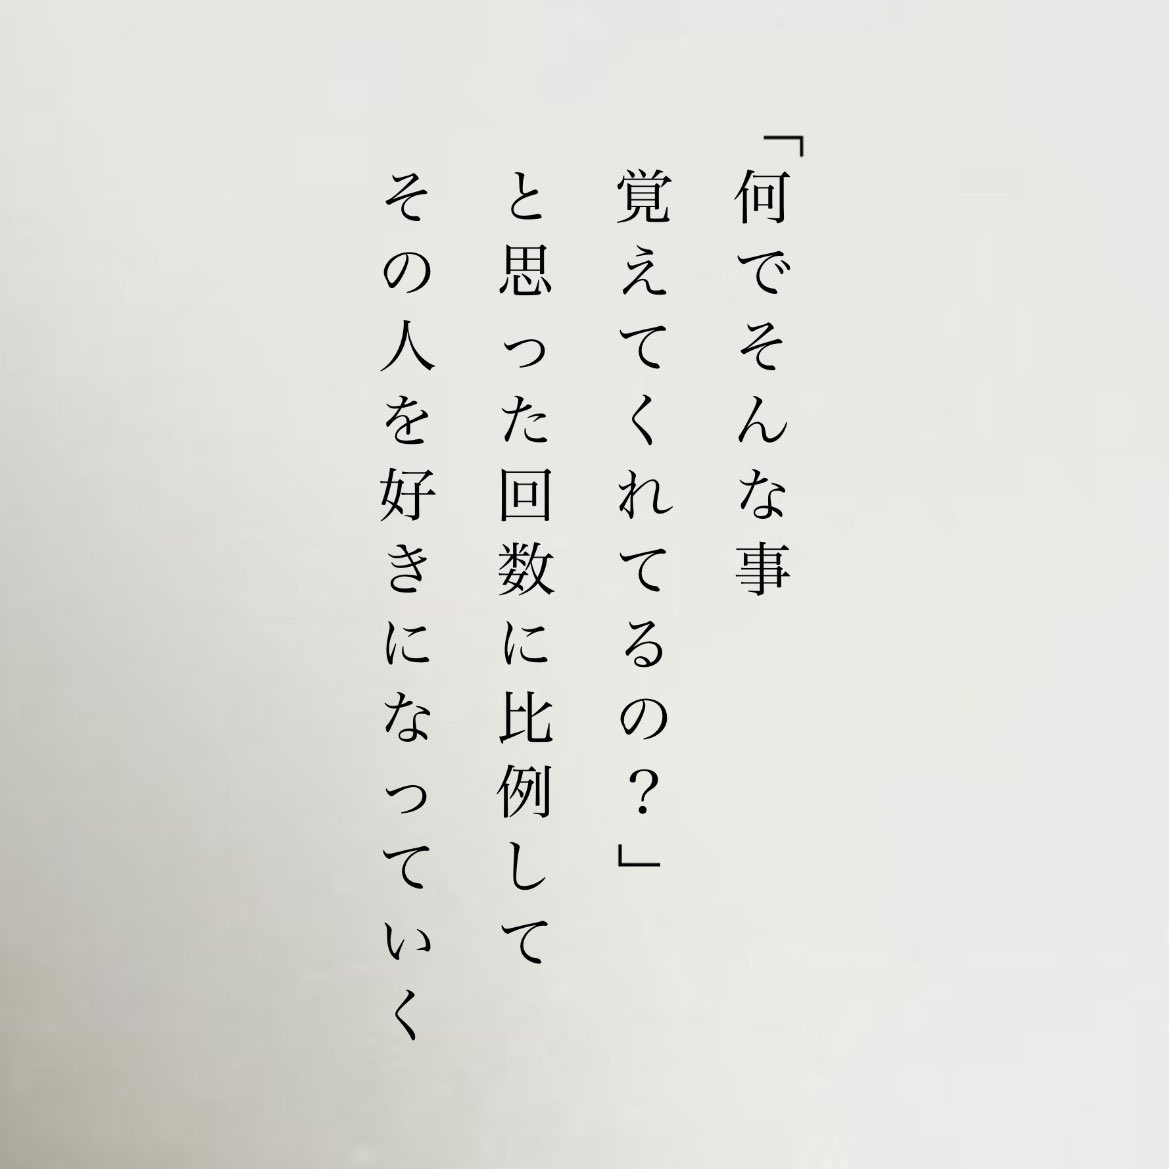 「何でそんな事
覚えてくれてるの？」
と思った回数に比例して
その人を好きになっていく